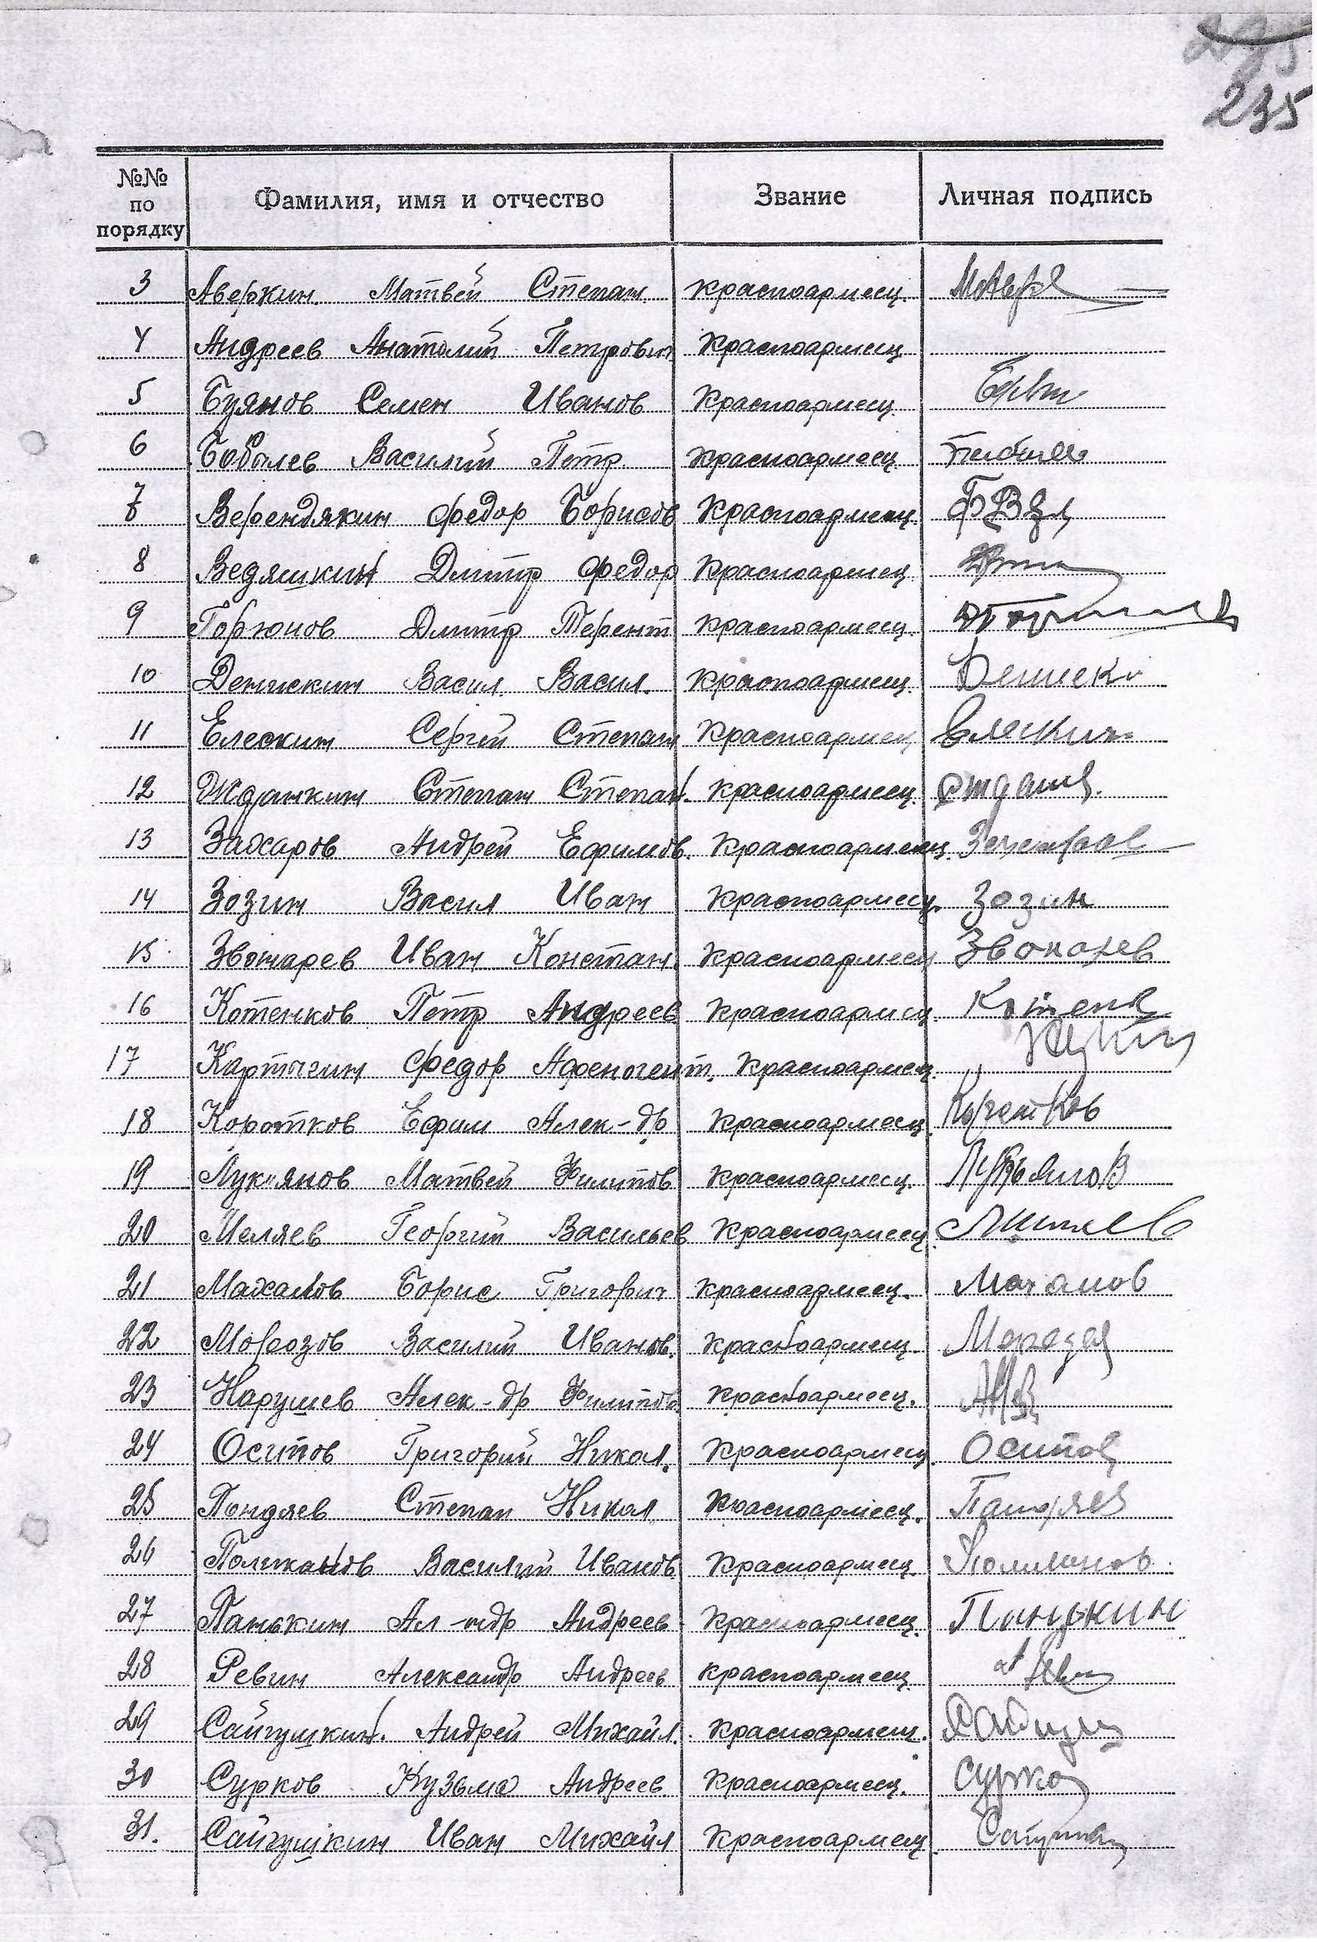 235
№№ по порядку Фамилия, имя и отчество Звание Личная подпись
3 Аверкин Матвей Степан красноармеец
4 Андреев Анатолий Петрович Красноармеец
5 Буянов Семен Иванов Красноармеец
6 Бобылев Василий Петр Красноармеец
7 Верендякин Федор Борисов Красноармеец
8 Ведяшкин Дмитр Федор Красноармеец
9 Горюнов Дмитр Терент Красноармеец
10 Денискин Васил. Васил. Красноармеец
11 Елескин Сергей Степан Красноармеец Елескин
12 Жданкин Степан Степан. Красноармеец
13 Захаров Андрей Ефимов. Красноармеец Захаров
14 Зозин Васил Иван Красноармеец. Зозин
15 Звонарев Иван Констан. Красноармеец Звонарев
16 Котенков Петр Андреев Красноармеец
17 Картыгин Федор Афеногент. Красноармеец
18 Коротков Ефим Алек-др Красноармеец Коротков
19 Лукиянов Матвей Филипов Красноармеец. Лукьянов
20 Миляев Георгий Васильев Красноармеец Миляев
21 Махалов Борис Григорич Красноармеец. Махалов
22 Морозов Василий Иванов. Красноармеец. Морозов
23 Нарушев Алек-др Филипов Красноармеец.
24 Осипов Григорий Никол. Красноармеец Осипов
25 Пондяев Степан Никол Красноармеец.
26 Поликанов Василий Иванов Красноармеец. Поликанов
27 Панькин Ал-ндр Андреев Красноармеец. Панькин
28 Ревин Александр Андреев Красноармеец
29 Сайгушкин. Андрей Михайл. Красноармеец.
30 Сурков Кузьма Андреев Красноармеец. Сурков
31. Сайгушкин Иван Михайл Красноармеец